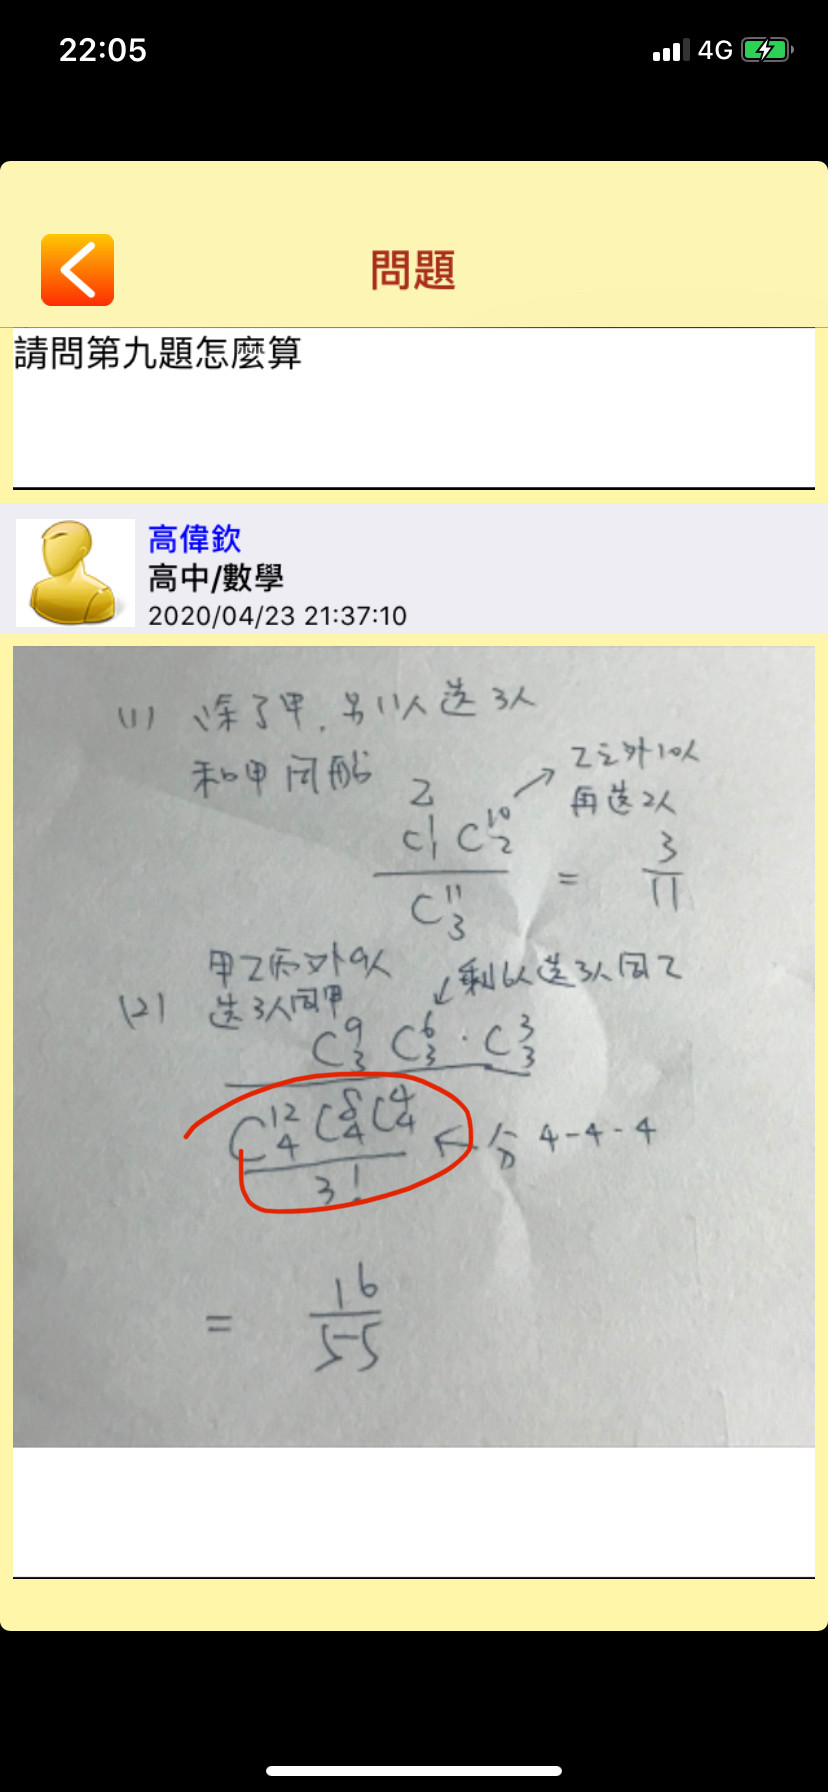 22:05 4G
問題
請問第九題怎麼算
高偉欽
高中/數學
2020/04/23 21:37:10
(1) 除了甲.另11人选3人
和甲同船
乙之外10人
再选2人
乙
C¹₁ C¹⁰₂
C¹¹₃
= 3/11
(2) 甲乙丙外9人
选3人同甲
剩6人选3人同乙
C⁹₃ C⁶₃ · C³₃
C¹²₄ C⁸₄ C⁴₄
3!
← 分 4-4-4
= 16/55